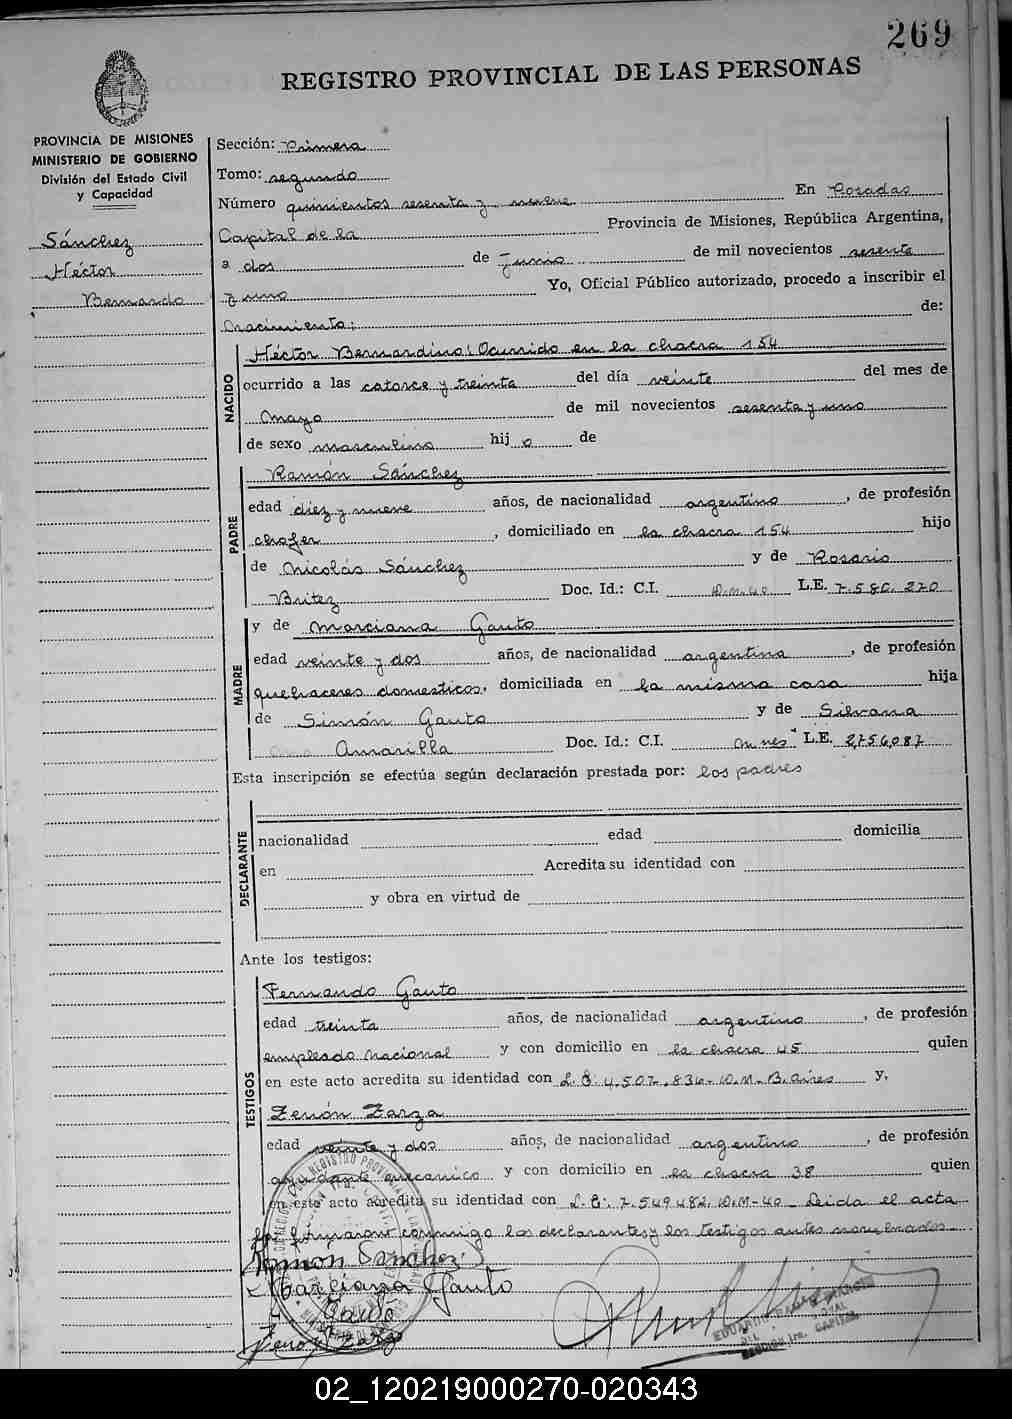 269
REGISTRO PROVINCIAL DE LAS PERSONAS
PROVINCIA DE MISIONES
MINISTERIO DE GOBIERNO
División del Estado Civil
y Capacidad
Sánchez
Héctor
Bernardo
Sección: Primera
Tomo: segundo
Número quinientos sesenta y nueve En Posadas
Capital de la Provincia de Misiones, República Argentina,
a dos de Junio de mil novecientos sesenta
y uno Yo, Oficial Público autorizado, procedo a inscribir el
Nacimiento: de:
NACIDO
Héctor Bernardino: Ocurrido en la chacra 154
ocurrido a las catorce y treinta del día veinte del mes de
Mayo de mil novecientos sesenta y uno
de sexo masculino hij o de
PADRE
Ramón Sánchez
edad diez y nueve años, de nacionalidad argentino, de profesión
chofer, domiciliado en la chacra 154 hijo
de Nicolás Sánchez y de Rosario
Britez Doc. Id.: C.I. D.M. 40 L.E. 7.580.270
MADRE
y de Marciana Gauto
edad veinte y dos años, de nacionalidad argentina, de profesión
quehaceres domesticos, domiciliada en la misma casa hija
de Simón Gauto y de Silvana
Amarilla Doc. Id.: C.I. L.E. 2756087
Esta inscripción se efectúa según declaración prestada por: los padres
DECLARANTE
nacionalidad edad domicilia
en Acredita su identidad con
y obra en virtud de
Ante los testigos:
TESTIGOS
Fernando Gauto
edad treinta años, de nacionalidad argentino, de profesión
empleado nacional y con domicilio en la chacra 45 quien
en este acto acredita su identidad con L.E. 4.507.836-D.M-B.aires y,
Zenón Zarza
edad veinte y dos años, de nacionalidad argentino, de profesión
ayudante mecanico y con domicilio en la chacra 38 quien
en este acto acredita su identidad con L.E. 7.549.482. D.M-40. Leida el acta
la firmaron conmigo los declarantes y los testigos antes nombrados
Ramón Sanchez
Marciana Gauto
F Gauto
Zenon Zarza
02_120219000270-020343